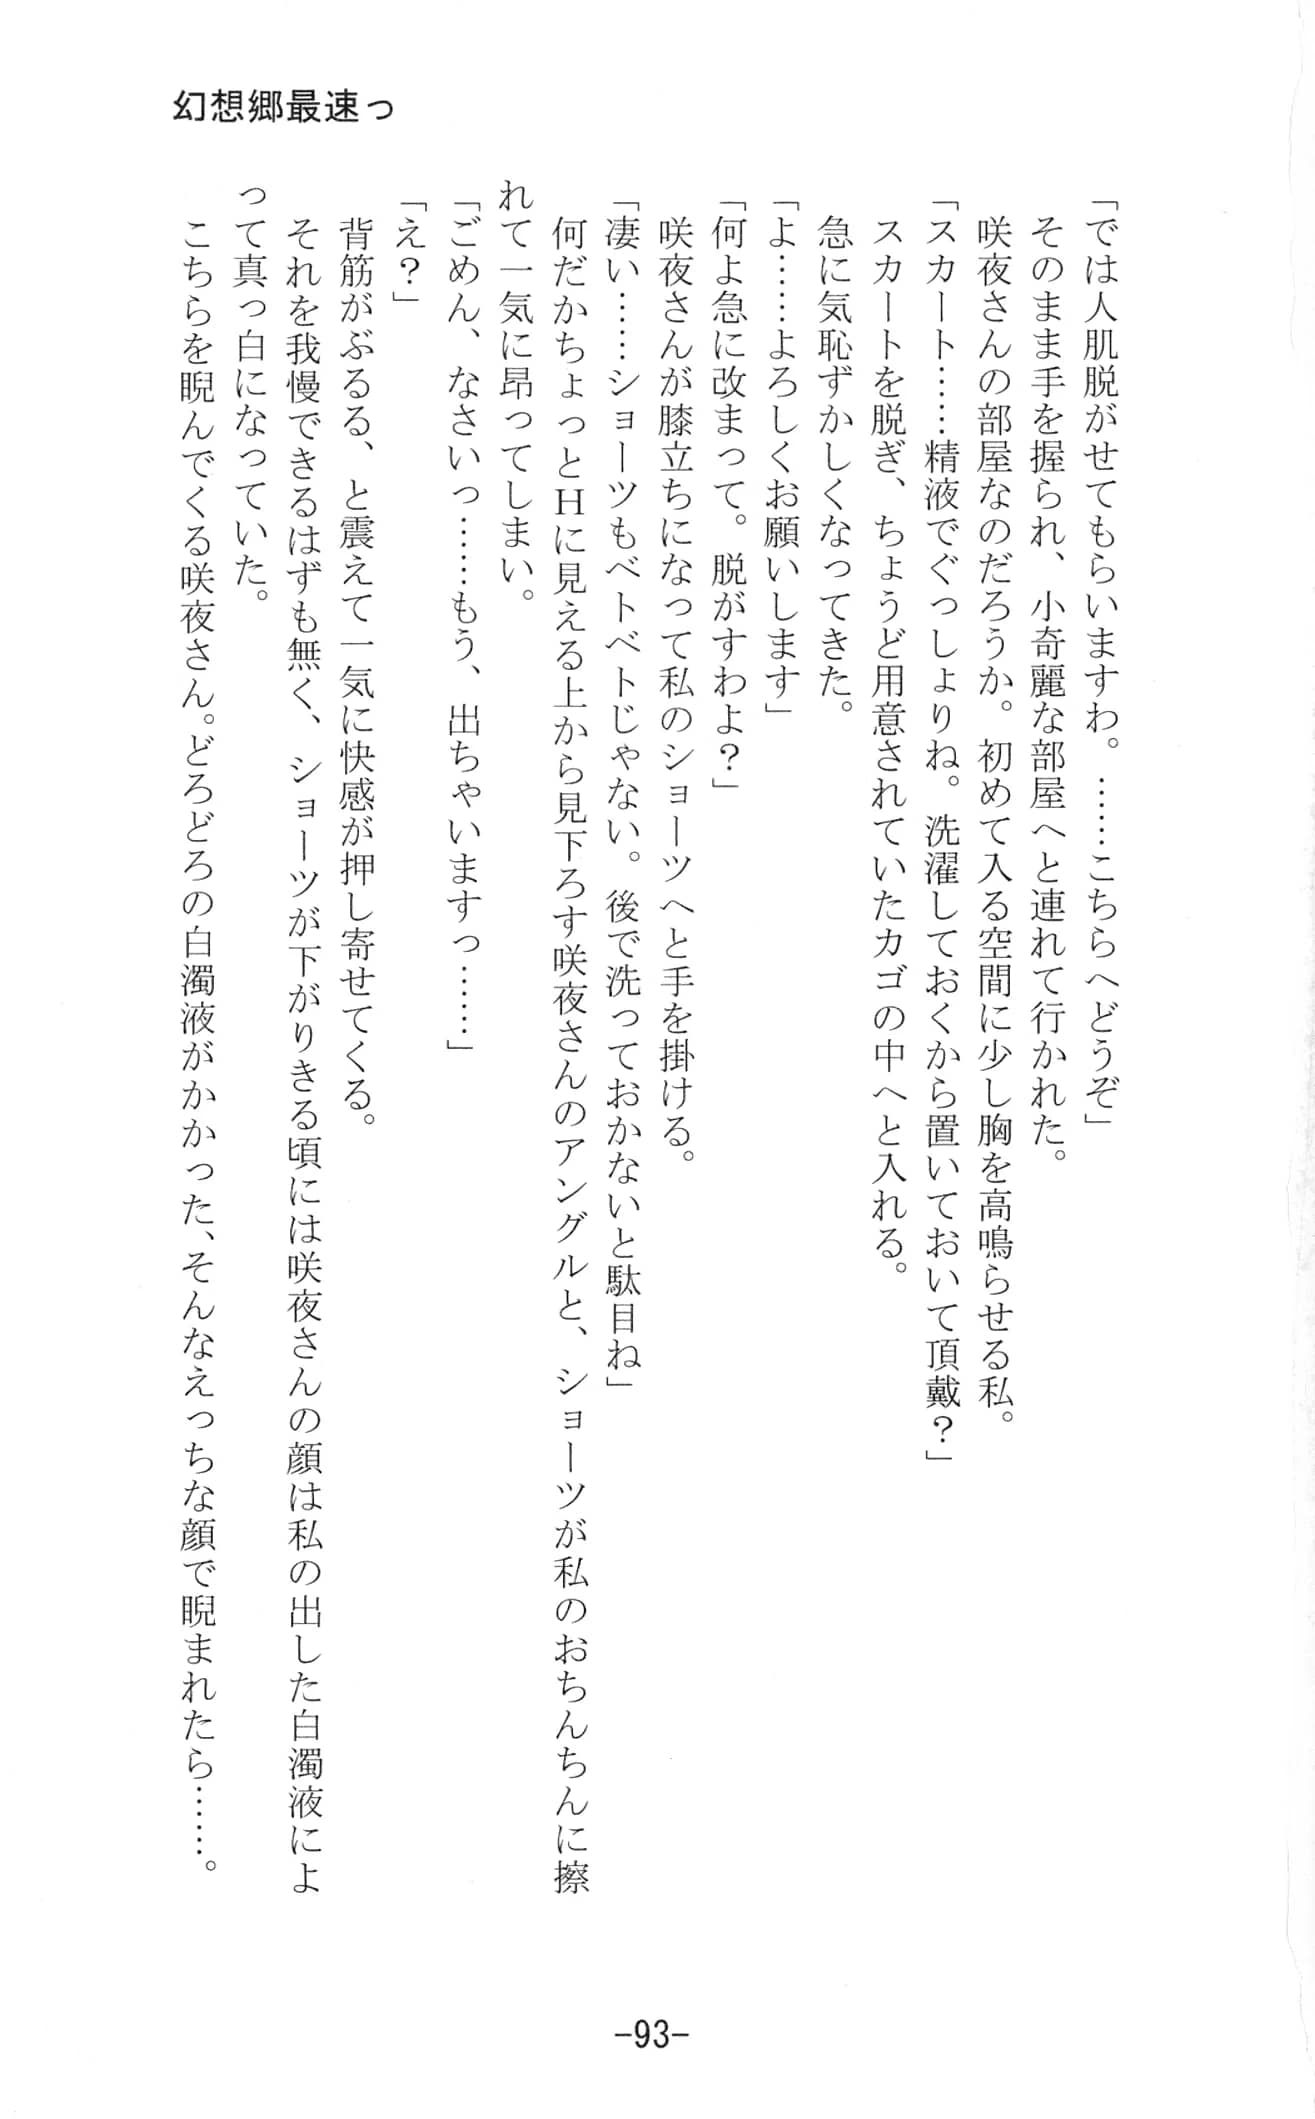 幻想郷最速っ
「では人肌脱がせてもらいますわ。……こちらへどうぞ」
そのまま手を握られ、小奇麗な部屋へと連れて行かれた。
咲夜さんの部屋なのだろうか。初めて入る空間に少し胸を高鳴らせる私。
「スカート……精液でぐっしょりね。洗濯しておくから置いておいて頂戴？」
スカートを脱ぎ、ちょうど用意されていたカゴの中へと入れる。
急に気恥ずかしくなってきた。
「よ……よろしくお願いします」
「何よ急に改まって。脱がすわよ？」
咲夜さんが膝立ちになって私のショーツへと手を掛ける。
「凄い……ショーツもベトベトじゃない。後で洗っておかないと駄目ね」
何だかちょっとHに見える上から見下ろす咲夜さんのアングルと、ショーツが私のおちんちんに擦
れて一気に昂ってしまい。
「ごめん、なさいっ……もう、出ちゃいますっ……」
「え？」
背筋がぶるる、と震えて一気に快感が押し寄せてくる。
それを我慢できるはずも無く、ショーツが下がりきる頃には咲夜さんの顔は私の出した白濁液によ
って真っ白になっていた。
こちらを睨んでくる咲夜さん。どろどろの白濁液がかかった、そんなえっちな顔で睨まれたら……。
-93-